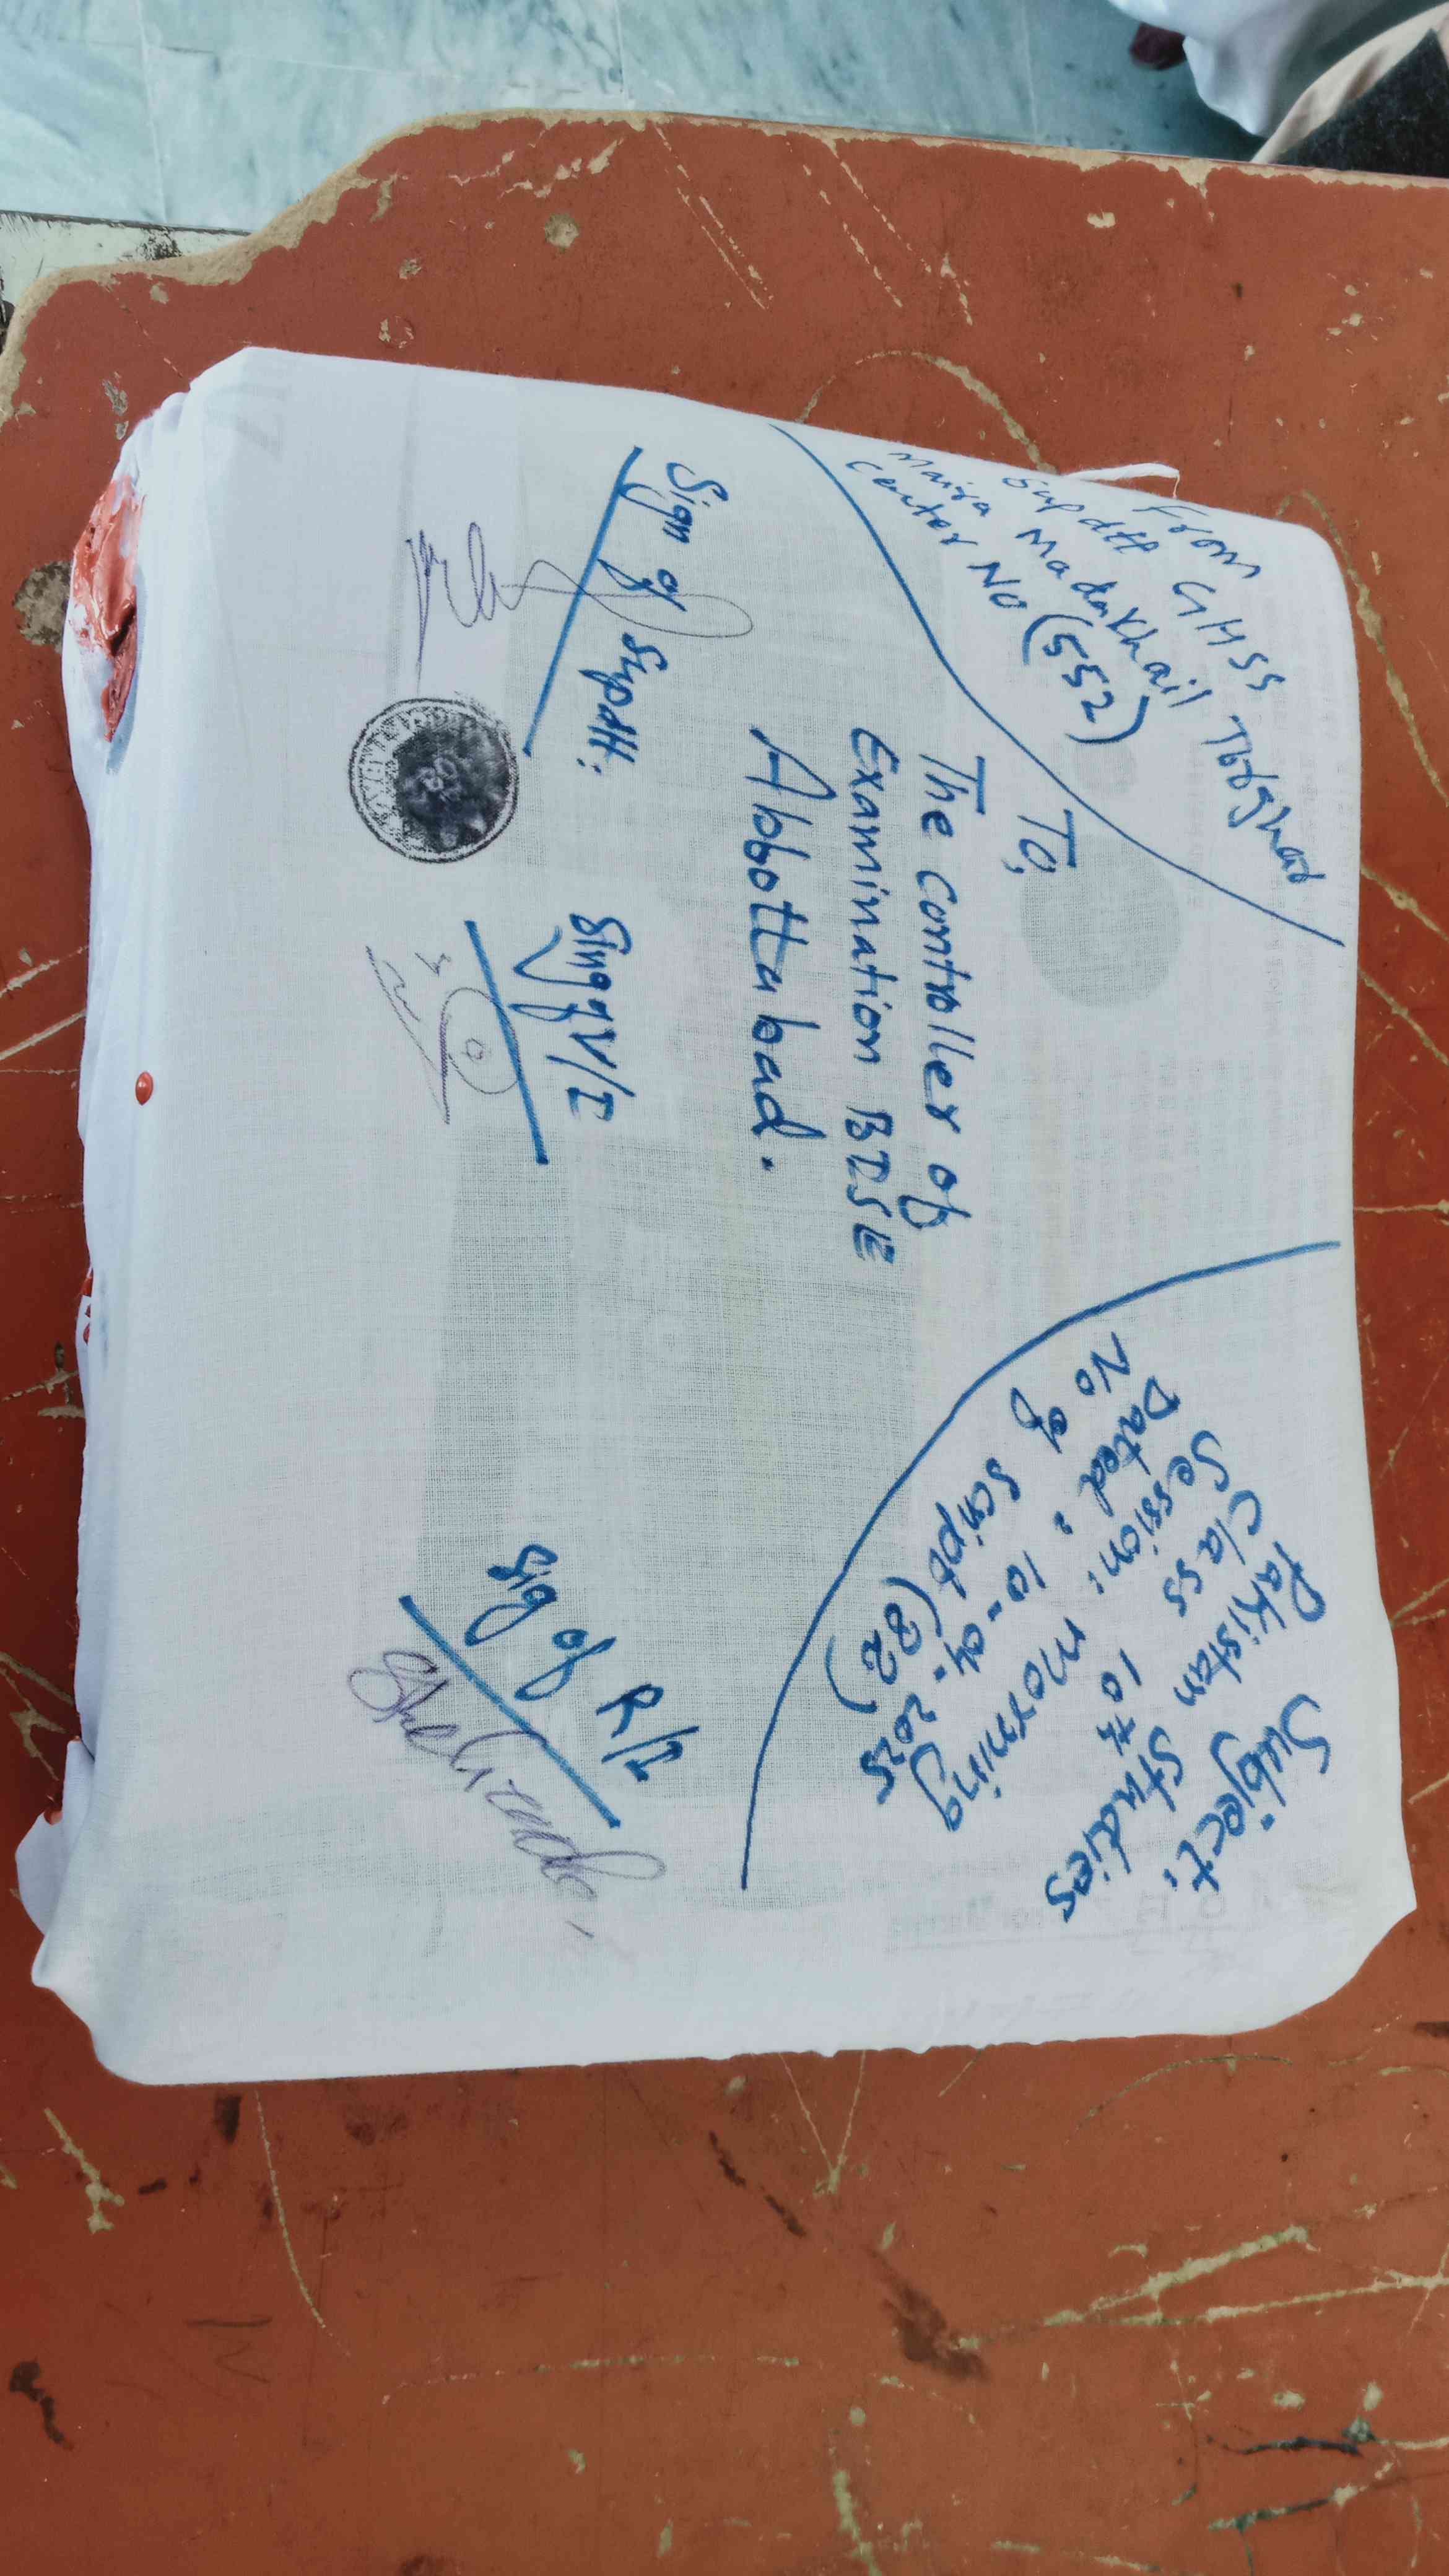 From
Supdtt GHSS
Maira Madakhail
Center No (552)
To,
The controller of
Examination BISE
Abbottabad.
Subject:
Pakistan Studies
Class 10th
Session: Morning
Dated: 10-04-2025
No of Script (82)
Sign of Supdtt:
Sing of V/I
Sig of R/I